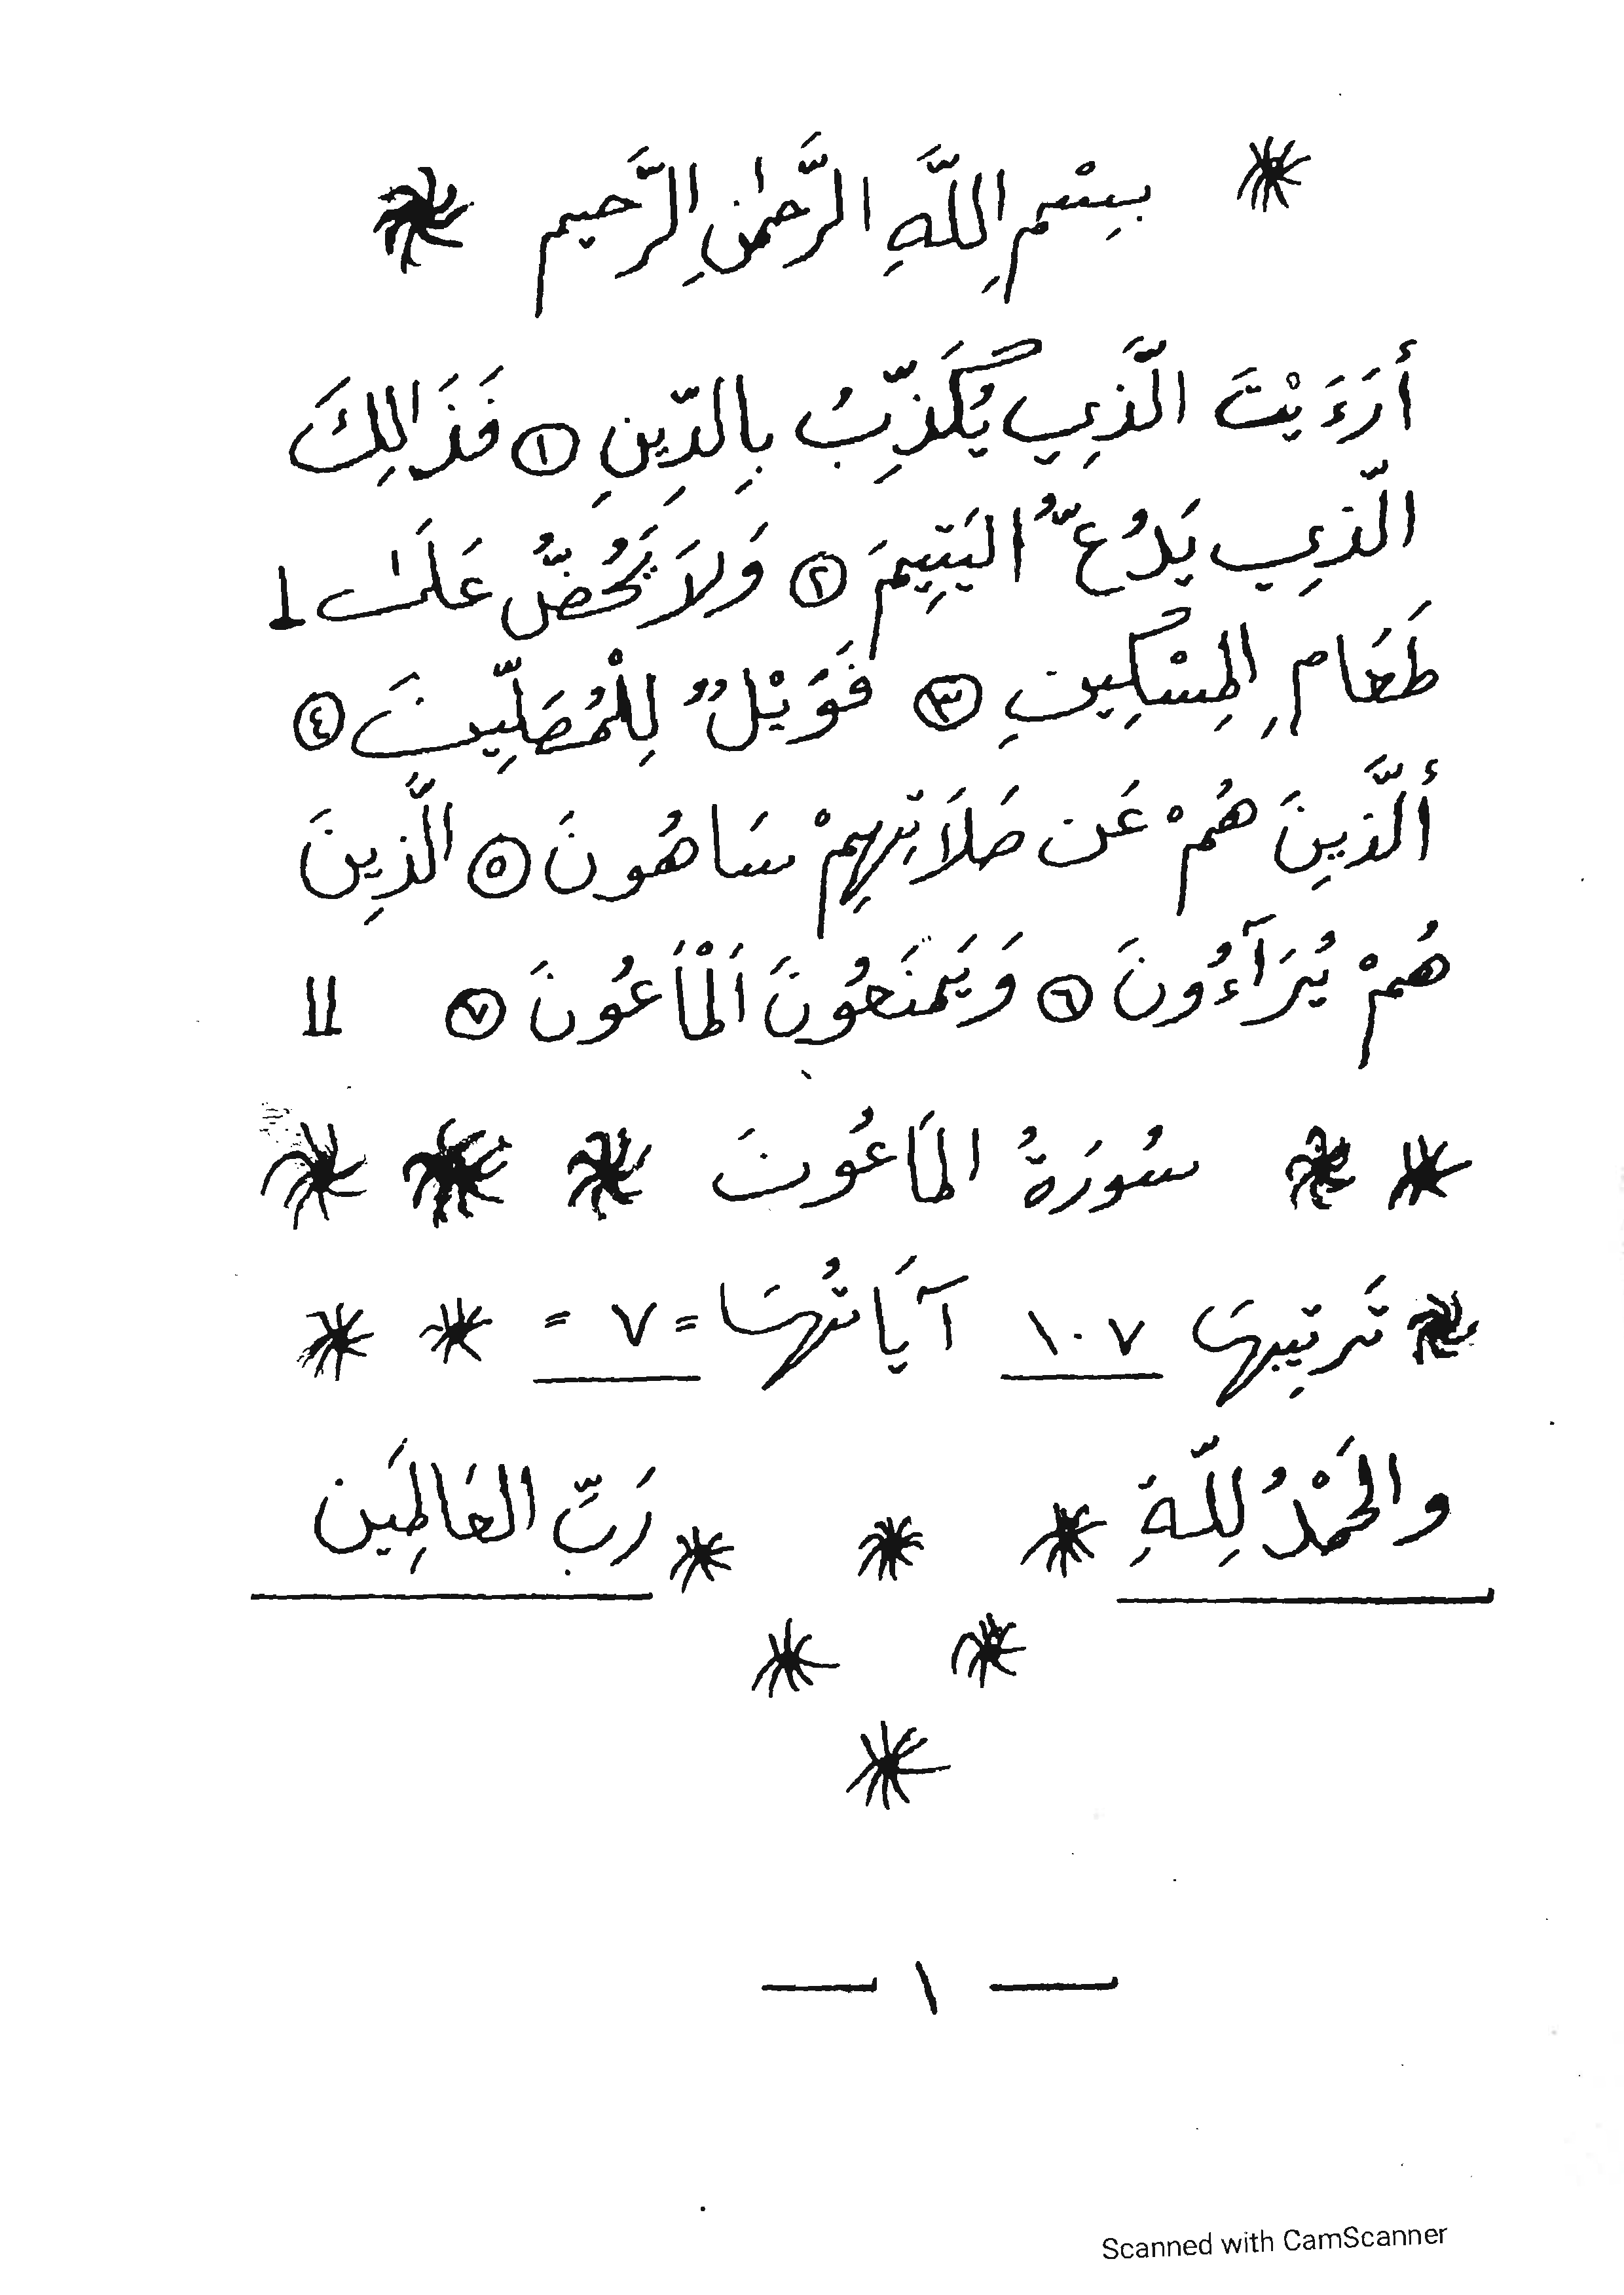 بِسْمِ اللَّهِ الرَّحمٰنِ الرَّحيم
أَرَءَيْتَ الَّذِي يُكَذِّبُ بِالدِّينِ ١ فَذَالِكَ
الّذِي يَدُعُّ اليَتِيمَ ٢ وَلاَ يَحُضُّ عَلَىٰ
طَعَامِ المِسْكِينِ ٣ فَوَيْلٌ لِلْمُصَلِّينَ ٤
ألَّذِينَ هُمْ عَن صَلَاتِهِمْ سَاهُونَ ٥ الَّذِينَ
هُمْ يُرَآءُونَ ٦ وَيَمنَعُونَ اَلْمَاعُونَ ٧
سُورَةُ المَاعُونَ
تَرتِيبهَا ١٠٧ آيَاتُهَا = ٧ =
والحَمْدُ لِلَّهِ رَبِّ العَالمِين
— ١ —
Scanned with CamScanner